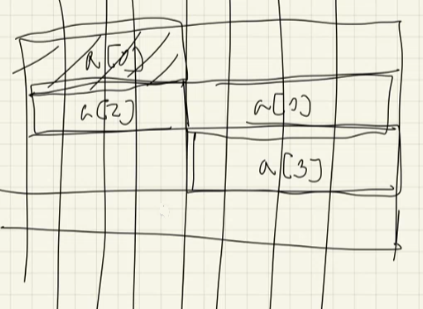 a[0]
a[2] a[1]
a[3]